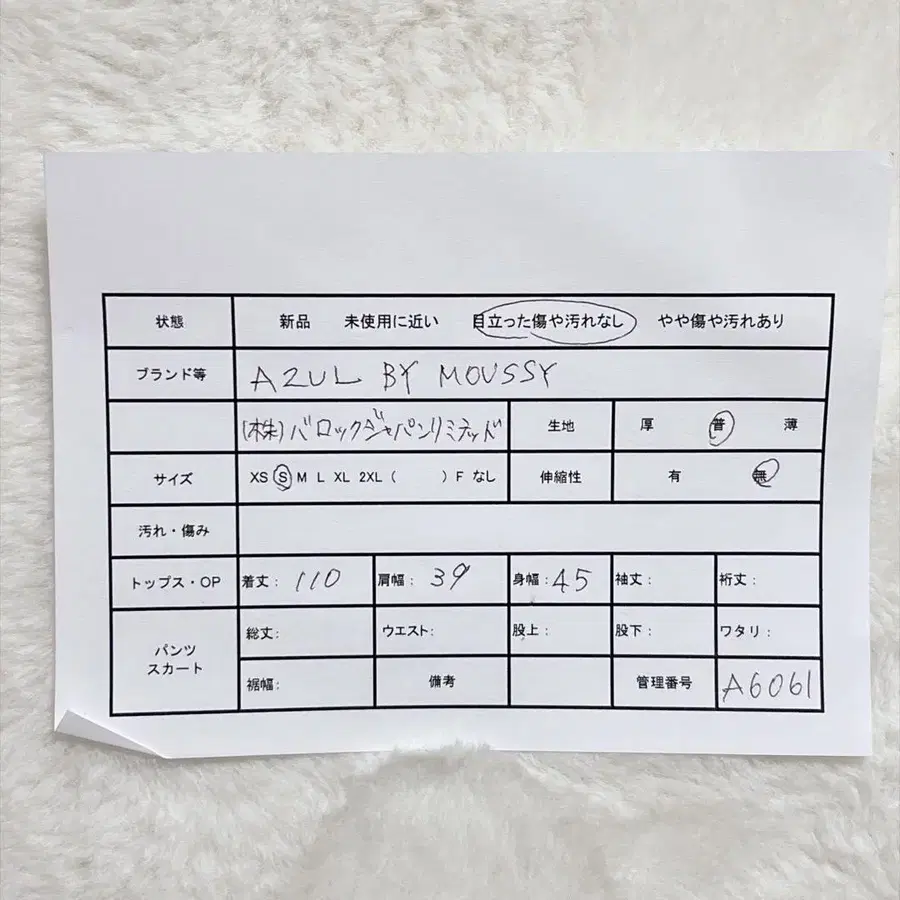 状態 新品 未使用に近い 目立った傷や汚れなし やや傷や汚れあり
ブランド等 AZUL BY MOUSSY
(株)バロックジャパンリミテッド 生地 厚 普 薄
サイズ XS S M L XL 2XL ( ) F なし 伸縮性 有 無
汚れ・傷み
トップス・OP 着丈: 110 肩幅: 39 身幅: 45 袖丈: 裄丈:
パンツ
スカート
総丈: ウエスト: 股上: 股下: ワタリ:
裾幅: 備考 管理番号 A6061